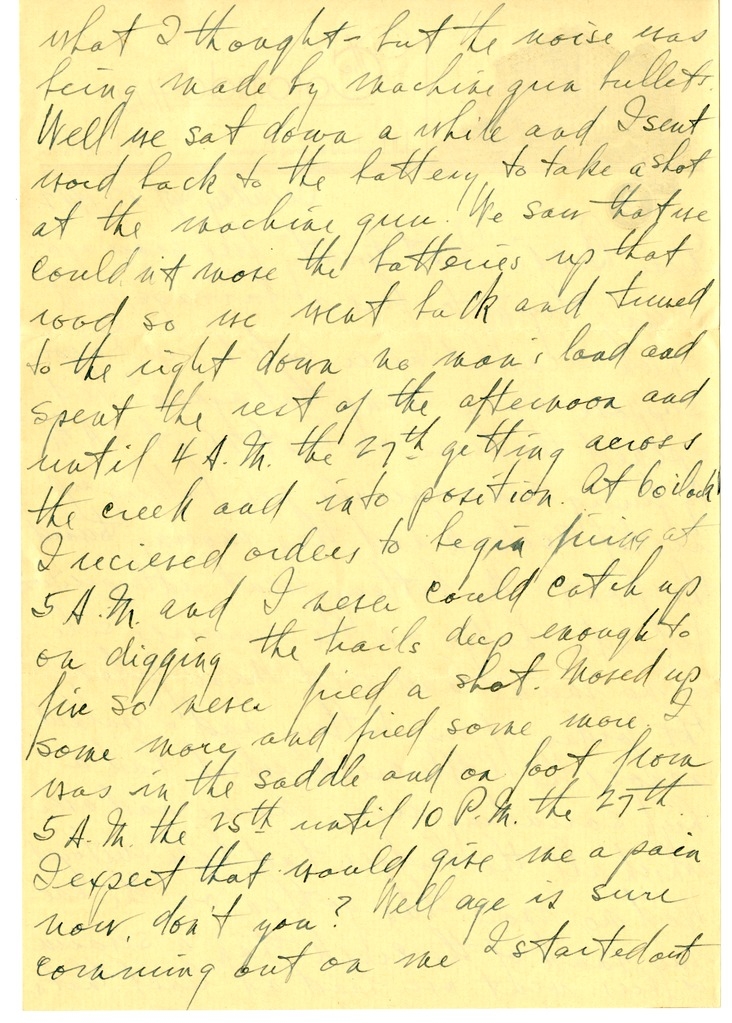 what I thought - but the noise was
being made by machine gun bullets.
Well we sat down a while and I sent
word back to the battery to take a shot
at the machine gun. We saw that we
couldn't move the batteries up that
road so we went back and turned
to the right down no man's land and
spent the rest of the afternoon and
until 4 A.M. the 27th getting across
the creek and into position. At 6 o'clock
I recieved orders to begin firing at
5 A.M. and I never could catch up
on digging the trails deep enough to
fire so never fired a shot. Moved up
some more and fired some more. I
was in the saddle and on foot from
5 A.M. the 25th until 10 P.M. the 27th.
I expect that would give me a pain
now, don't you? Well age is sure
comming out on me I started out